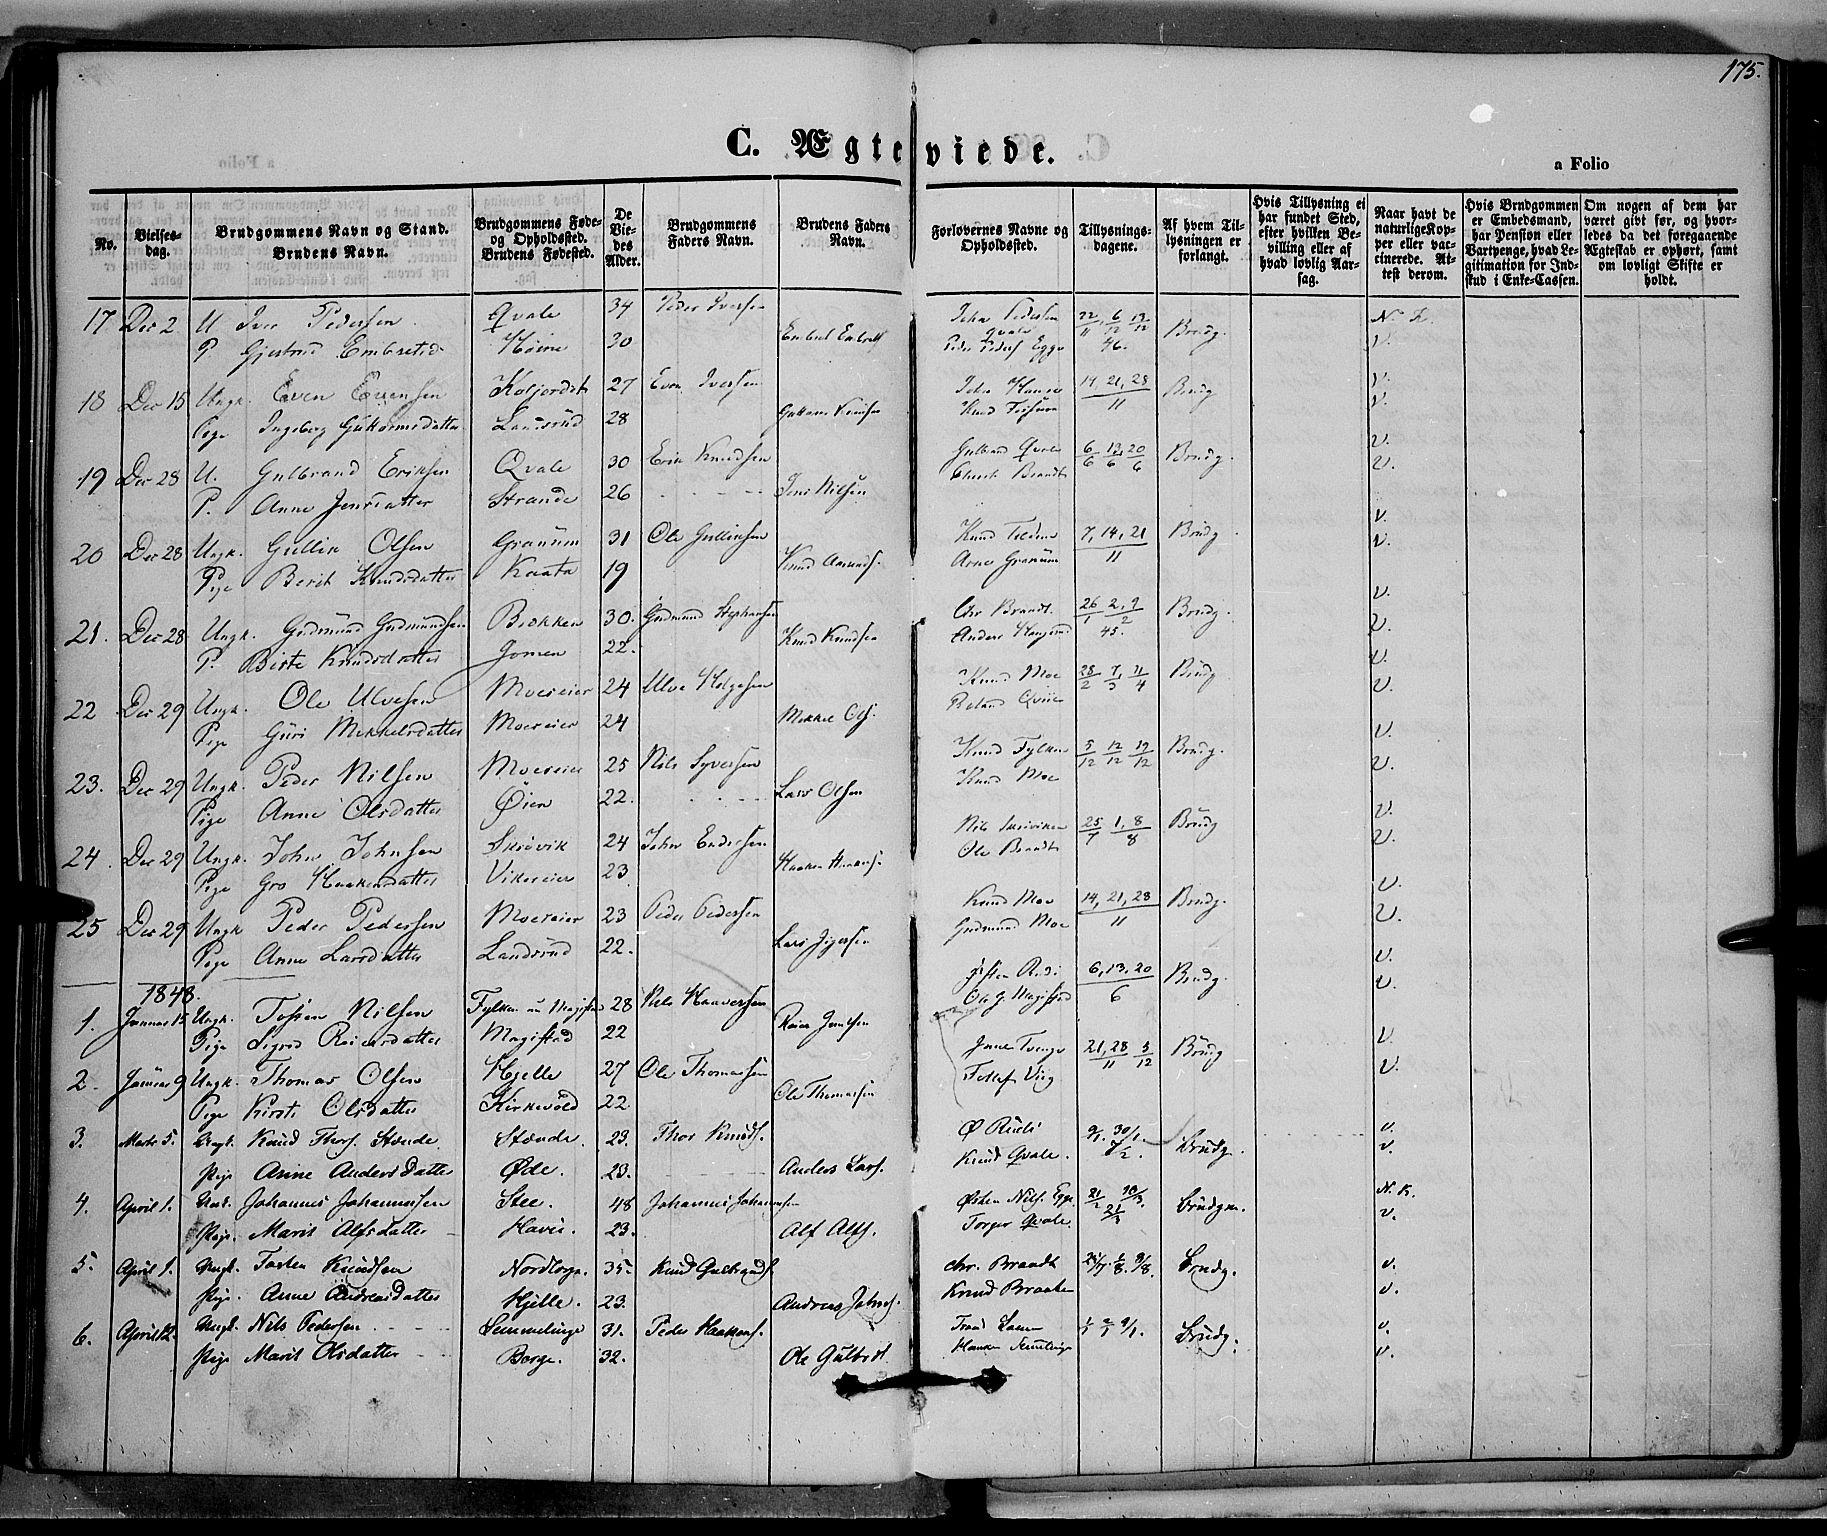 175.
C. Ægteviede.
a Folio
No.
Vielses-
dag.
Brudgommens Navn og Stand.
Brudens Navn.
Brudgommens Føde-
og Opholdssted.
Brudens Fødested.
De
Vie-
des
Alder.
Brudgommens
Faders Navn.
Brudens Faders
Navn.
Forlovernes Navne og
Opholdssted.
Tillysnings-
dagene.
Af hvem Til-
lysningen er
forlangt.
Hvis Tillysning ei
har fundet Sted,
efter hvilken Be-
villing eller af
hvad lovlig Aar-
sag.
Naar havt de
naturlige Kop-
per eller vac-
cinerede. At-
test derom.
Hvis Brudgommen
er Embedsmand,
har Pension eller
Vartpenge, hvad Le-
gitimation for Ind-
skud i Enke-Cassen.
Om nogen af dem har
været givt før, og hvor-
ledes da det foregaaende
Ægteskab er ophørt, samt
om lovligt Skifte er
holdt.
17 Dec 2 U Iver Pedersen Qvale 34 Peder Iversen John Pedersen Qvale 22/11 6/12 13/12 46. Brudg. N. K.
P. Gjertrud Embretsd. 30 Embret Embrets Peder Peders Egge v.
18 Dec 15 Ungk. Even Evensen 27 Even Iversen John 14, 21, 28/11 Brudg v.
Pige Ingeborg Guttormsdatter Landsrud 28 Guttorm Knudsen Knud v.
19 Dec 28 U. Gulbrand Eriksen Qvale 30 Erik Knudsen Gulbrand Qvale 6/6 13/6 20/6 Brudg. v.
P. Anne Jensdatter Strande 26 Jens Nilsen Brandt v.
20 Dec 28 Ungk. Gullik Olsen Granum 31 Ole Gulliksen Knud 7, 14, 21/11 Brudg v.
Pige Berit Knudsdatter Kaata 19 Knud Amunds. Arne Granum v.
21. Dec 28 Ungk. Gudmund Gudmundsen Brokken 30. Gudmund Stephensen Chr Brandt 26/1 2, 9/2 45. Brudg. v.
P. Birte Knudsdatter Jomen 22. Knud Knudsen Anders v.
22 Dec 29 Ungk. Ole Ulvesen Moereier 24 Ulve Helgesen Knud Moe 28/2 7/3 11/4 Brudg v.
Pige Guri Mikkelsdatter Moereier 24 Mikkel Ols. v.
23. Dec 29 Ungk. Peder Nilsen Moereier 25 Nils Syversen Knud Fylken 5/12 12/12 19/12 Brudg. v.
Pige Anne Olsdatter Øien 22. Lars Olsen Knud Moe v.
24. Dec 29 Ungk. John Johnsen Skrøvik 24 John Endresen Nils Skrøviken 25/7 1, 8/8 Brudg v.
Pige Gro Haakensdatter Vikereier 23 Haaken Haakens. Ole Brandt v.
25 Dec 29 Ungk Peder Pedersen Moereier 23 Peder Pedersen Knud Moe 14, 21, 28/11 Brudg. v.
Pige Anne Larsdatter Landsrud 22. Lars Gudmund Moe v.
1848.
1. Januar 15 Ungk. Tosten Nilsen Fylken nu Magistad 28 Nils Haaversen 6, 13, 20/6 Brudg. v.
Pige Sigrid Reiersdatter Magistad 22 Reier Magistad v.
2. Januar 9 Ungk. Thomas Olsen Hjelle 27 Ole Thomassen 21, 28/11 5/12 Brudg v.
Pige Kirsti Olsdatter Kirkevold 22 Ole Thomassen v.
3. Marts 5. Ungk. Knud Thors. Stende Stende. 23. Thor Knuds. Ø Rudi 9/1. 30/1. Brudg. v.
Pige Anne Andersdatter Øde. 23. Anders Lars. Knud Qvale. v.
4. April 1. Johannes Johannessen Stee. 48 Johannes Johannesen Østen Nils. Egge 21/2 21/3 Brudgm. N. K.
Pige Marit Alfsdatter Havie. 23. Alf Alfs. Torger Qvale v.
5. April 1. Ungk. Tosten Knudsen Nordtorpe. 35. Knud Gulbrands. Chr. Brandt Brudg. v.
Pige Anne Andreasdatter Hjelle. 23. Andreas Johns. Knud Braaten v.
6. April 12. Ungk. Nils Pedersen Semmelenge 31. Peder Haakens. Brudg. v.
Pige Marit Olsdatter Berge. 32. Ole Gulbrds v.